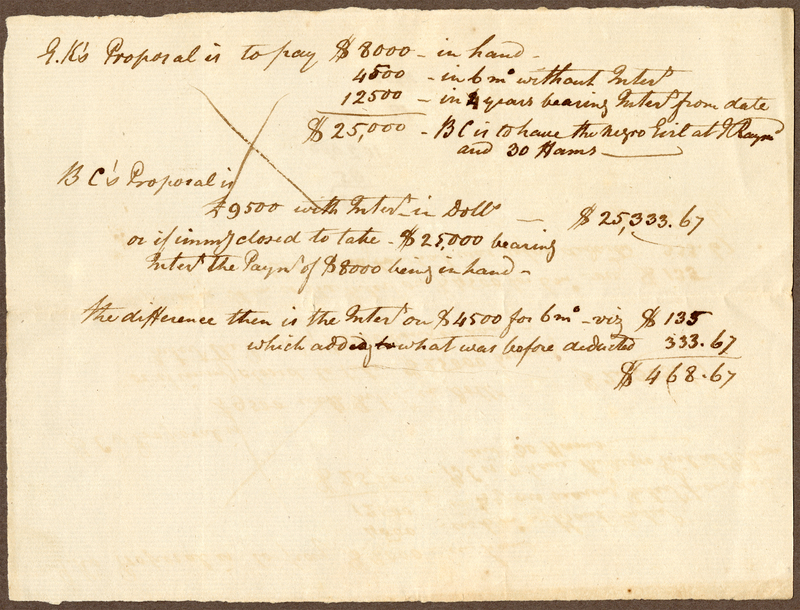 G.K's Proposal is to pay $8000 - in hand -
4500 - in 6 mo without Intert
12500 - in 4 years bearing Intert from date
$25,000 - B C is to have the negro Girl at
and 30 Hams
B C's Proposal is
£9500 with Intert in Dolls — $25,333.67
or if immy closed to take - $25,000 bearing
Intert the Paymt of $8000 being in hand -
the difference then is the Intert on $4500 for 6 mo - viz $135
which adding to what was before deducted 333.67
$468.67